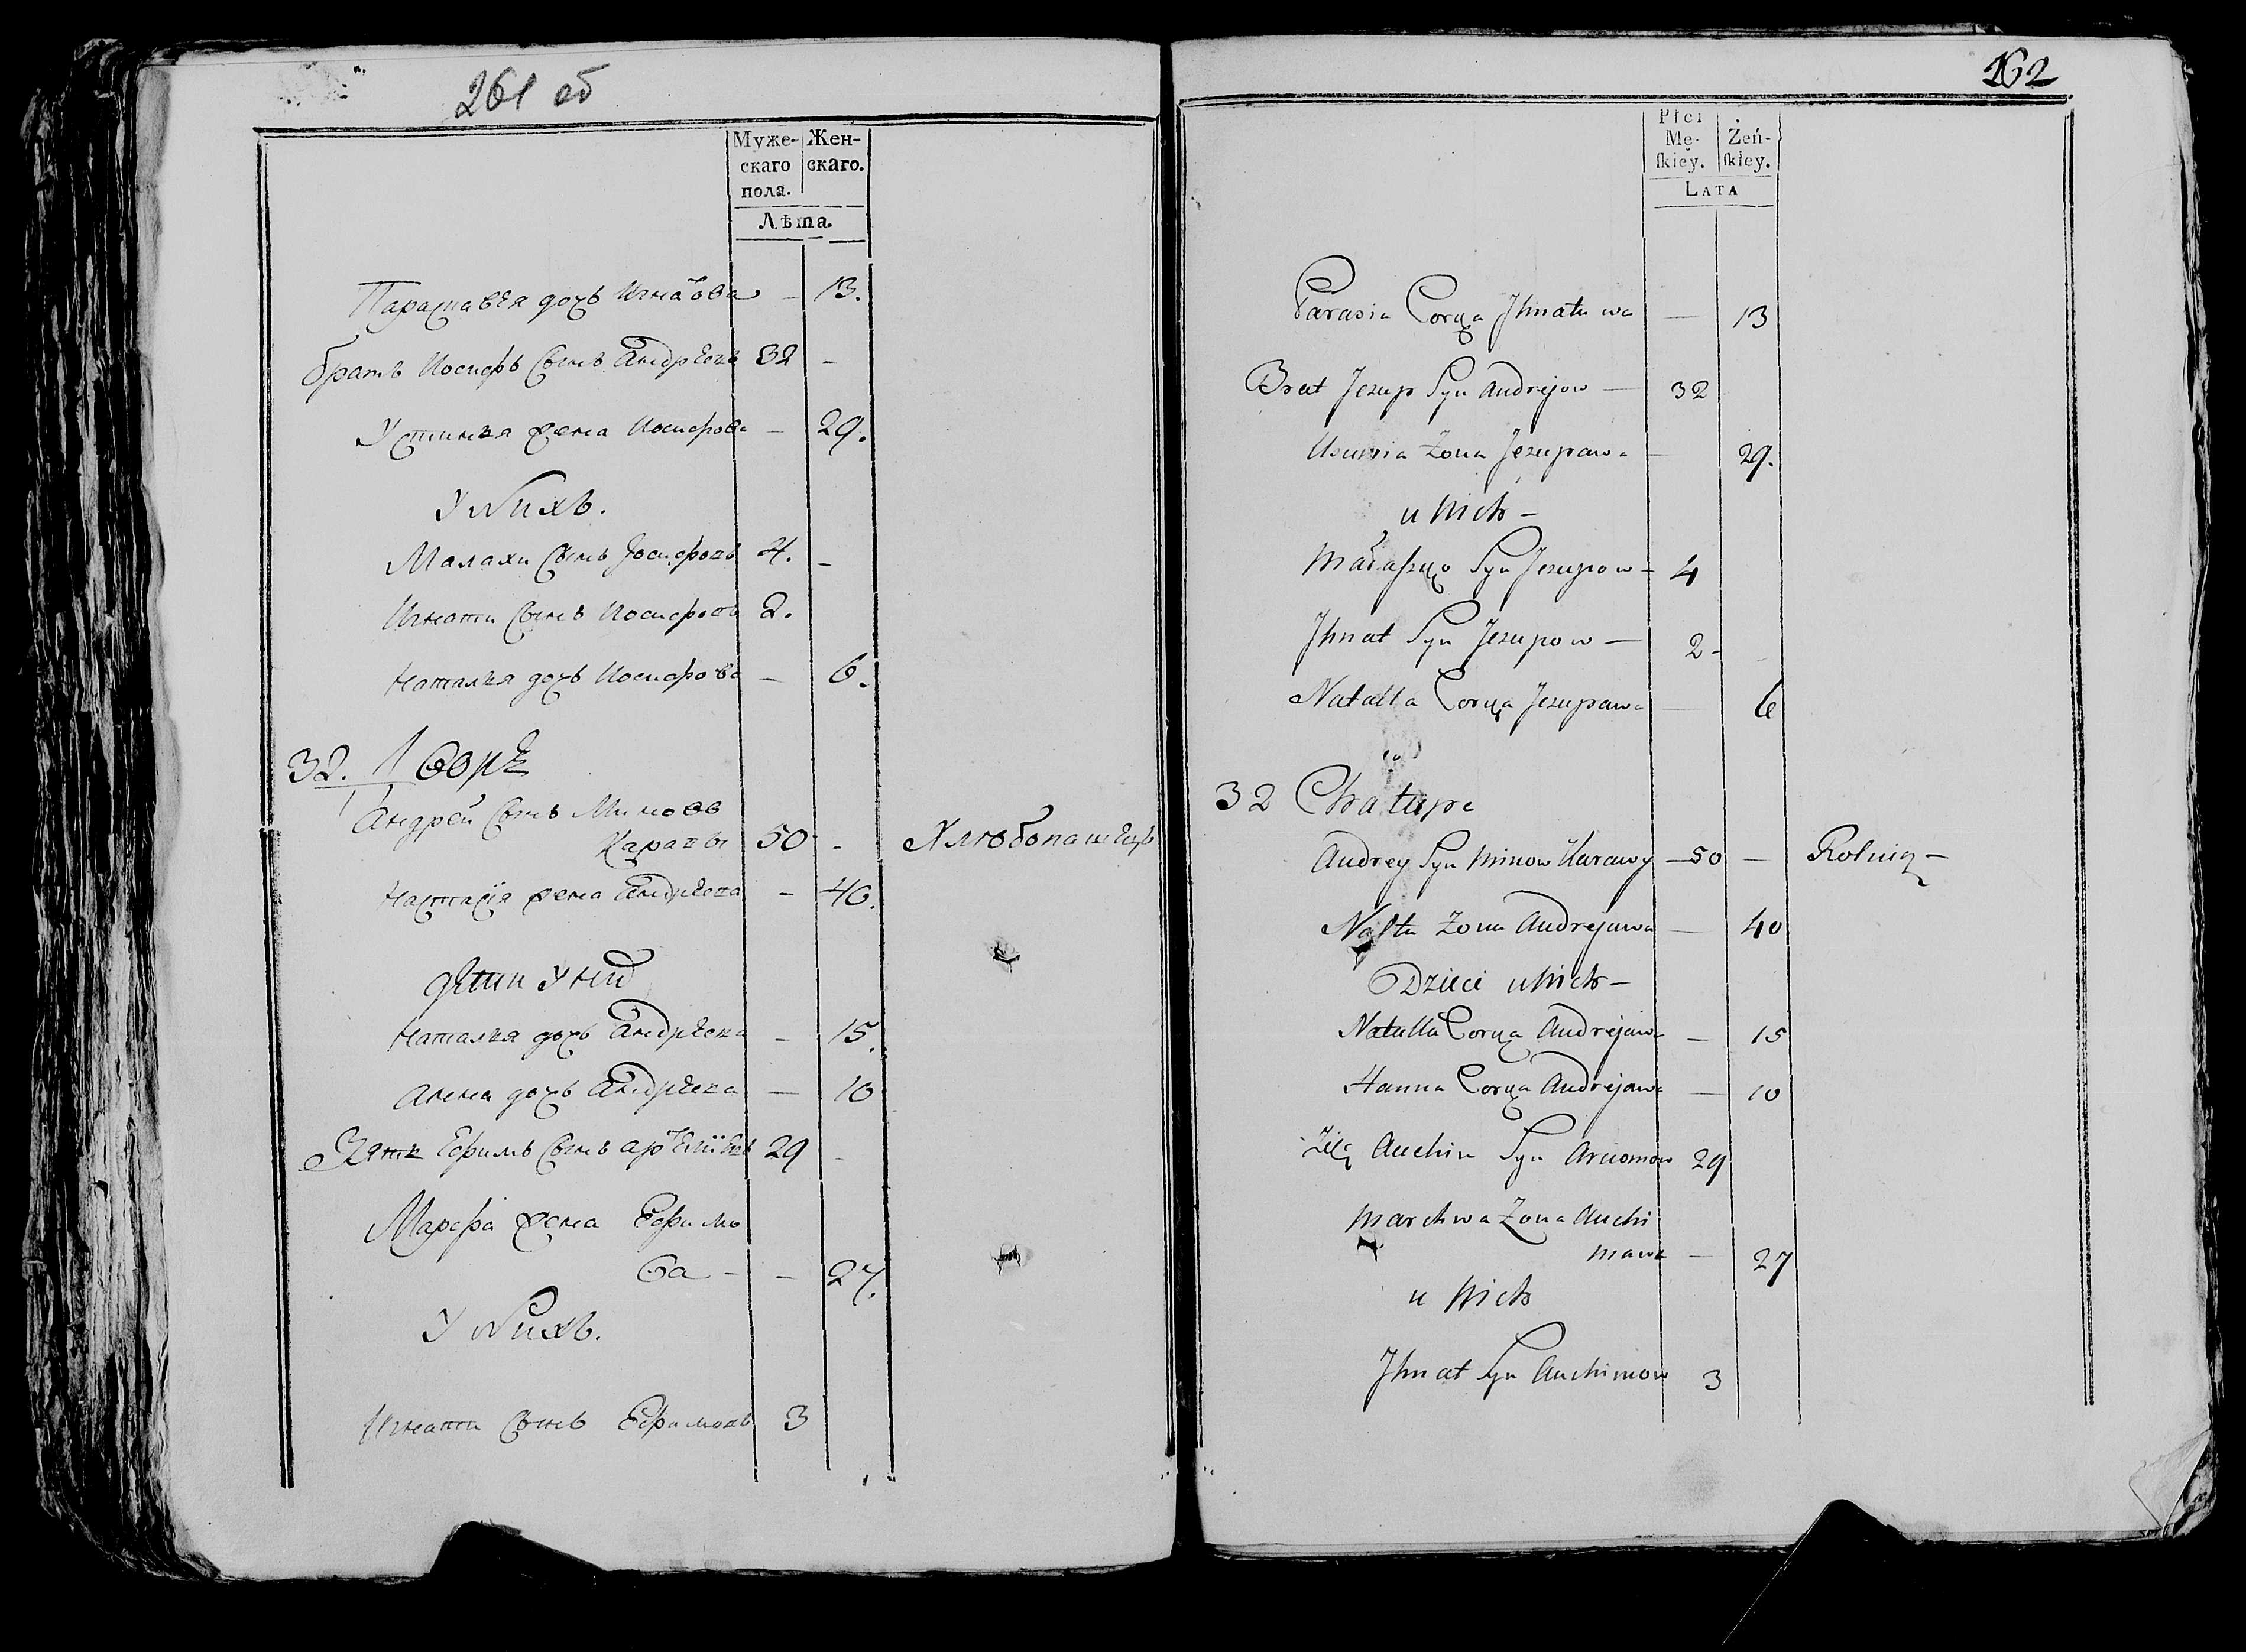 261 об
Муже-
скаго
пола.
Жен-
скаго.
Лѣта.
Параскавѣя дочь Игнатова - 13.
братъ Иосифъ Сынъ Андрѣевъ 32 -
Устинья жена Иосифова - 29.
У Нихъ.
Малахи Сынъ Иосифовъ 4. -
Игнати Сынъ Иосифовъ 2.
Наталья дочь Иосифова - 6.
32.
Андрей Сынъ Миновъ
Каравы 50 - Хлѣбопашецъ
Настасїя жена Андрѣева - 40.
дѣти у них
Наталья дочь Андрѣева - 15.
Анна дочь Андрѣева - 10
Зять Ефимъ Сынъ 29 -
Марфа жена Ефимо
ва - - 27.
У Нихъ.
Игнати Сынъ Ефимовъ 3
162
Płci
Mę-
ſkiey.
Żeń-
ſkiey.
LATA
Parasia Corqa Jhnatowa — 13
Brat Jezup Syn Andrejow — 32
Usunia Zona Jezupawa — 29.
u Nich —
Syn Jezupow — 4
Jhnat Syn Jezupow — 2 -
Natalla Corqa Jezupawa — 6
32 Chałupa
Andrey Syn Minow Karawy — 50 — Rolniq —
Naſta Zona Andrejawa — 40
Dzieci u Nich —
Natalla Corqa Andrejawa — 15
Hanna Corqa Andrejawa — 10
Auchin Syn Arciomow 29
Marchwa Zona Auchi
mawa — 27
u Nich
Jhnat Syn Auchimow 3